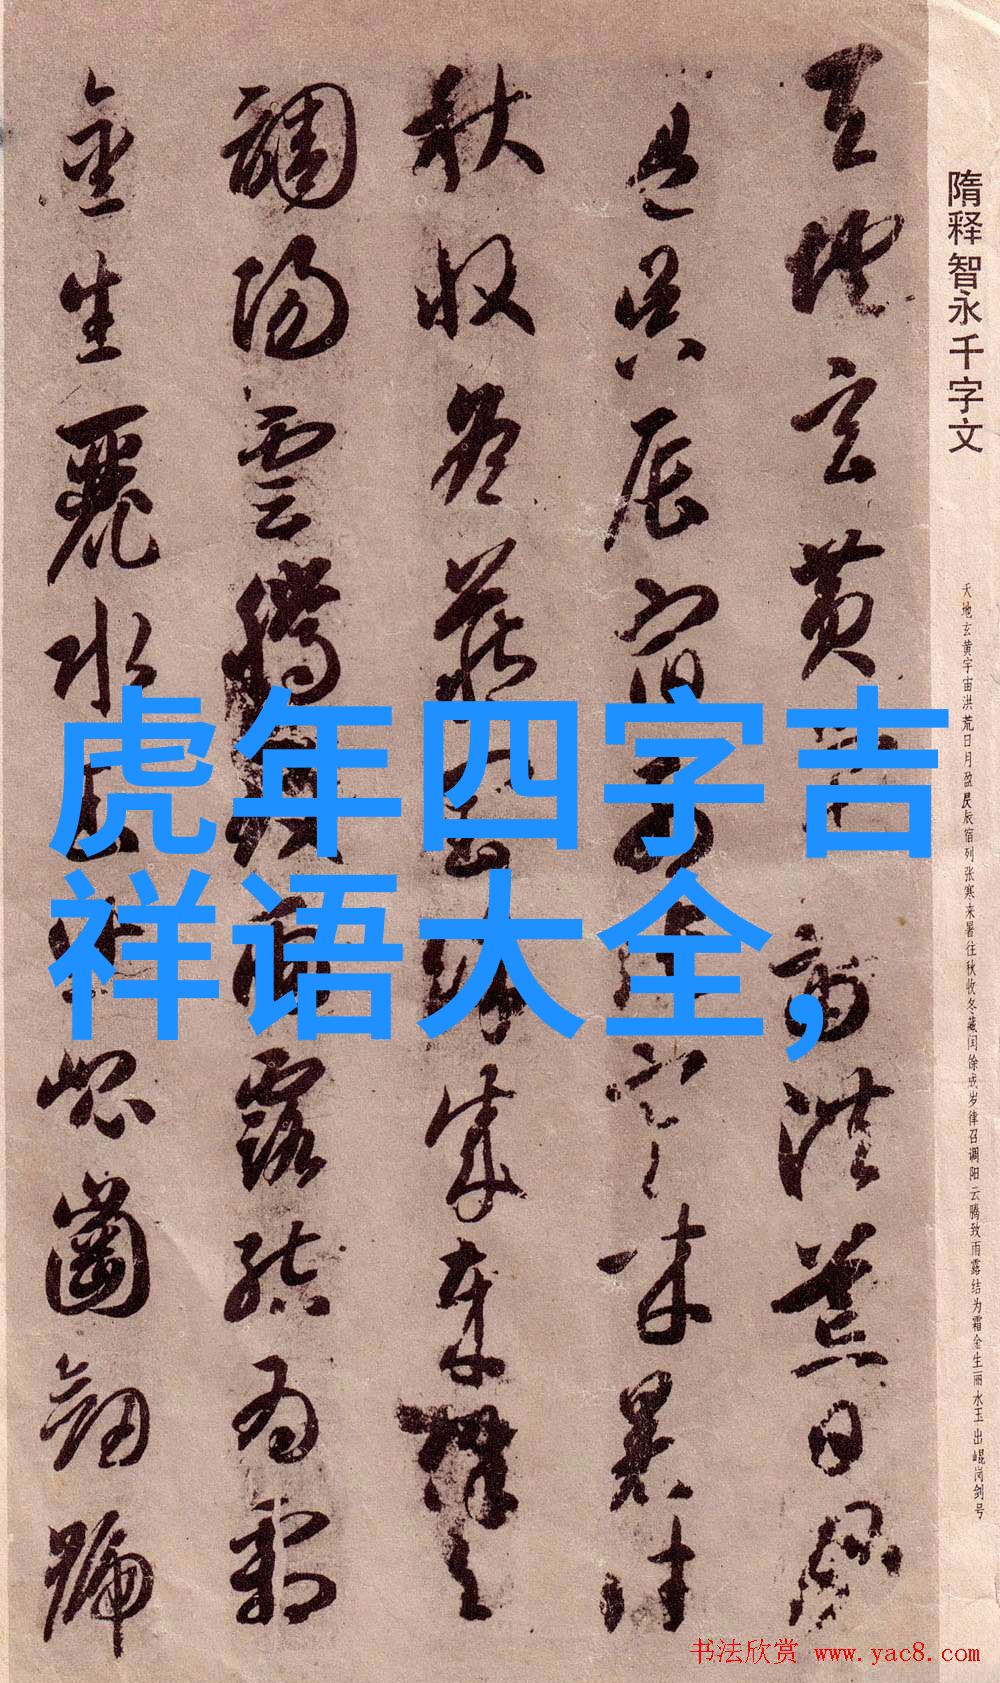 隋释智永千字文
天地玄黄宇宙洪荒日月盈昃辰宿列张寒来暑往秋收冬藏闰馀成岁律召调阳云腾致雨露结为霜金生丽水玉出崐岗剑号
天地玄黄宙洪荒日月
盈昃辰宿列張寒来暑往
秋收冬藏閏餘成歲律
調陽雲騰致雨露結為霜
金生麗水玉出崐崗劍號
虎年四字吉
祥语大全,
书法欣赏 www.yac8.com